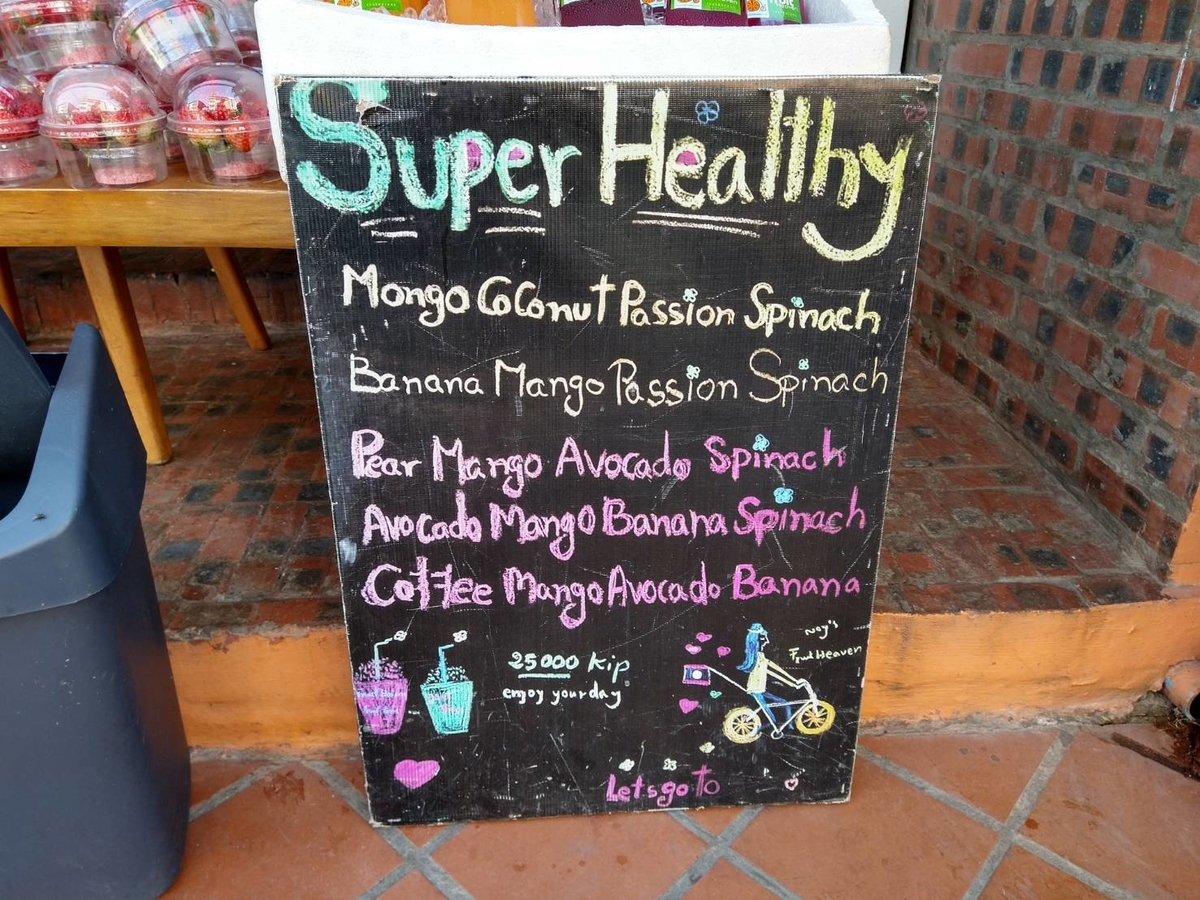 Super Healthy
Mongo CoConut Passion Spinach
Banana Mango Passion Spinach
Pear Mango Avocado Spinach
Avocado Mango Banana Spinach
Coffee Mango Avocado Banana
25000 kip
enjoy your day
Noy's
Fruit Heaven
Lets go to